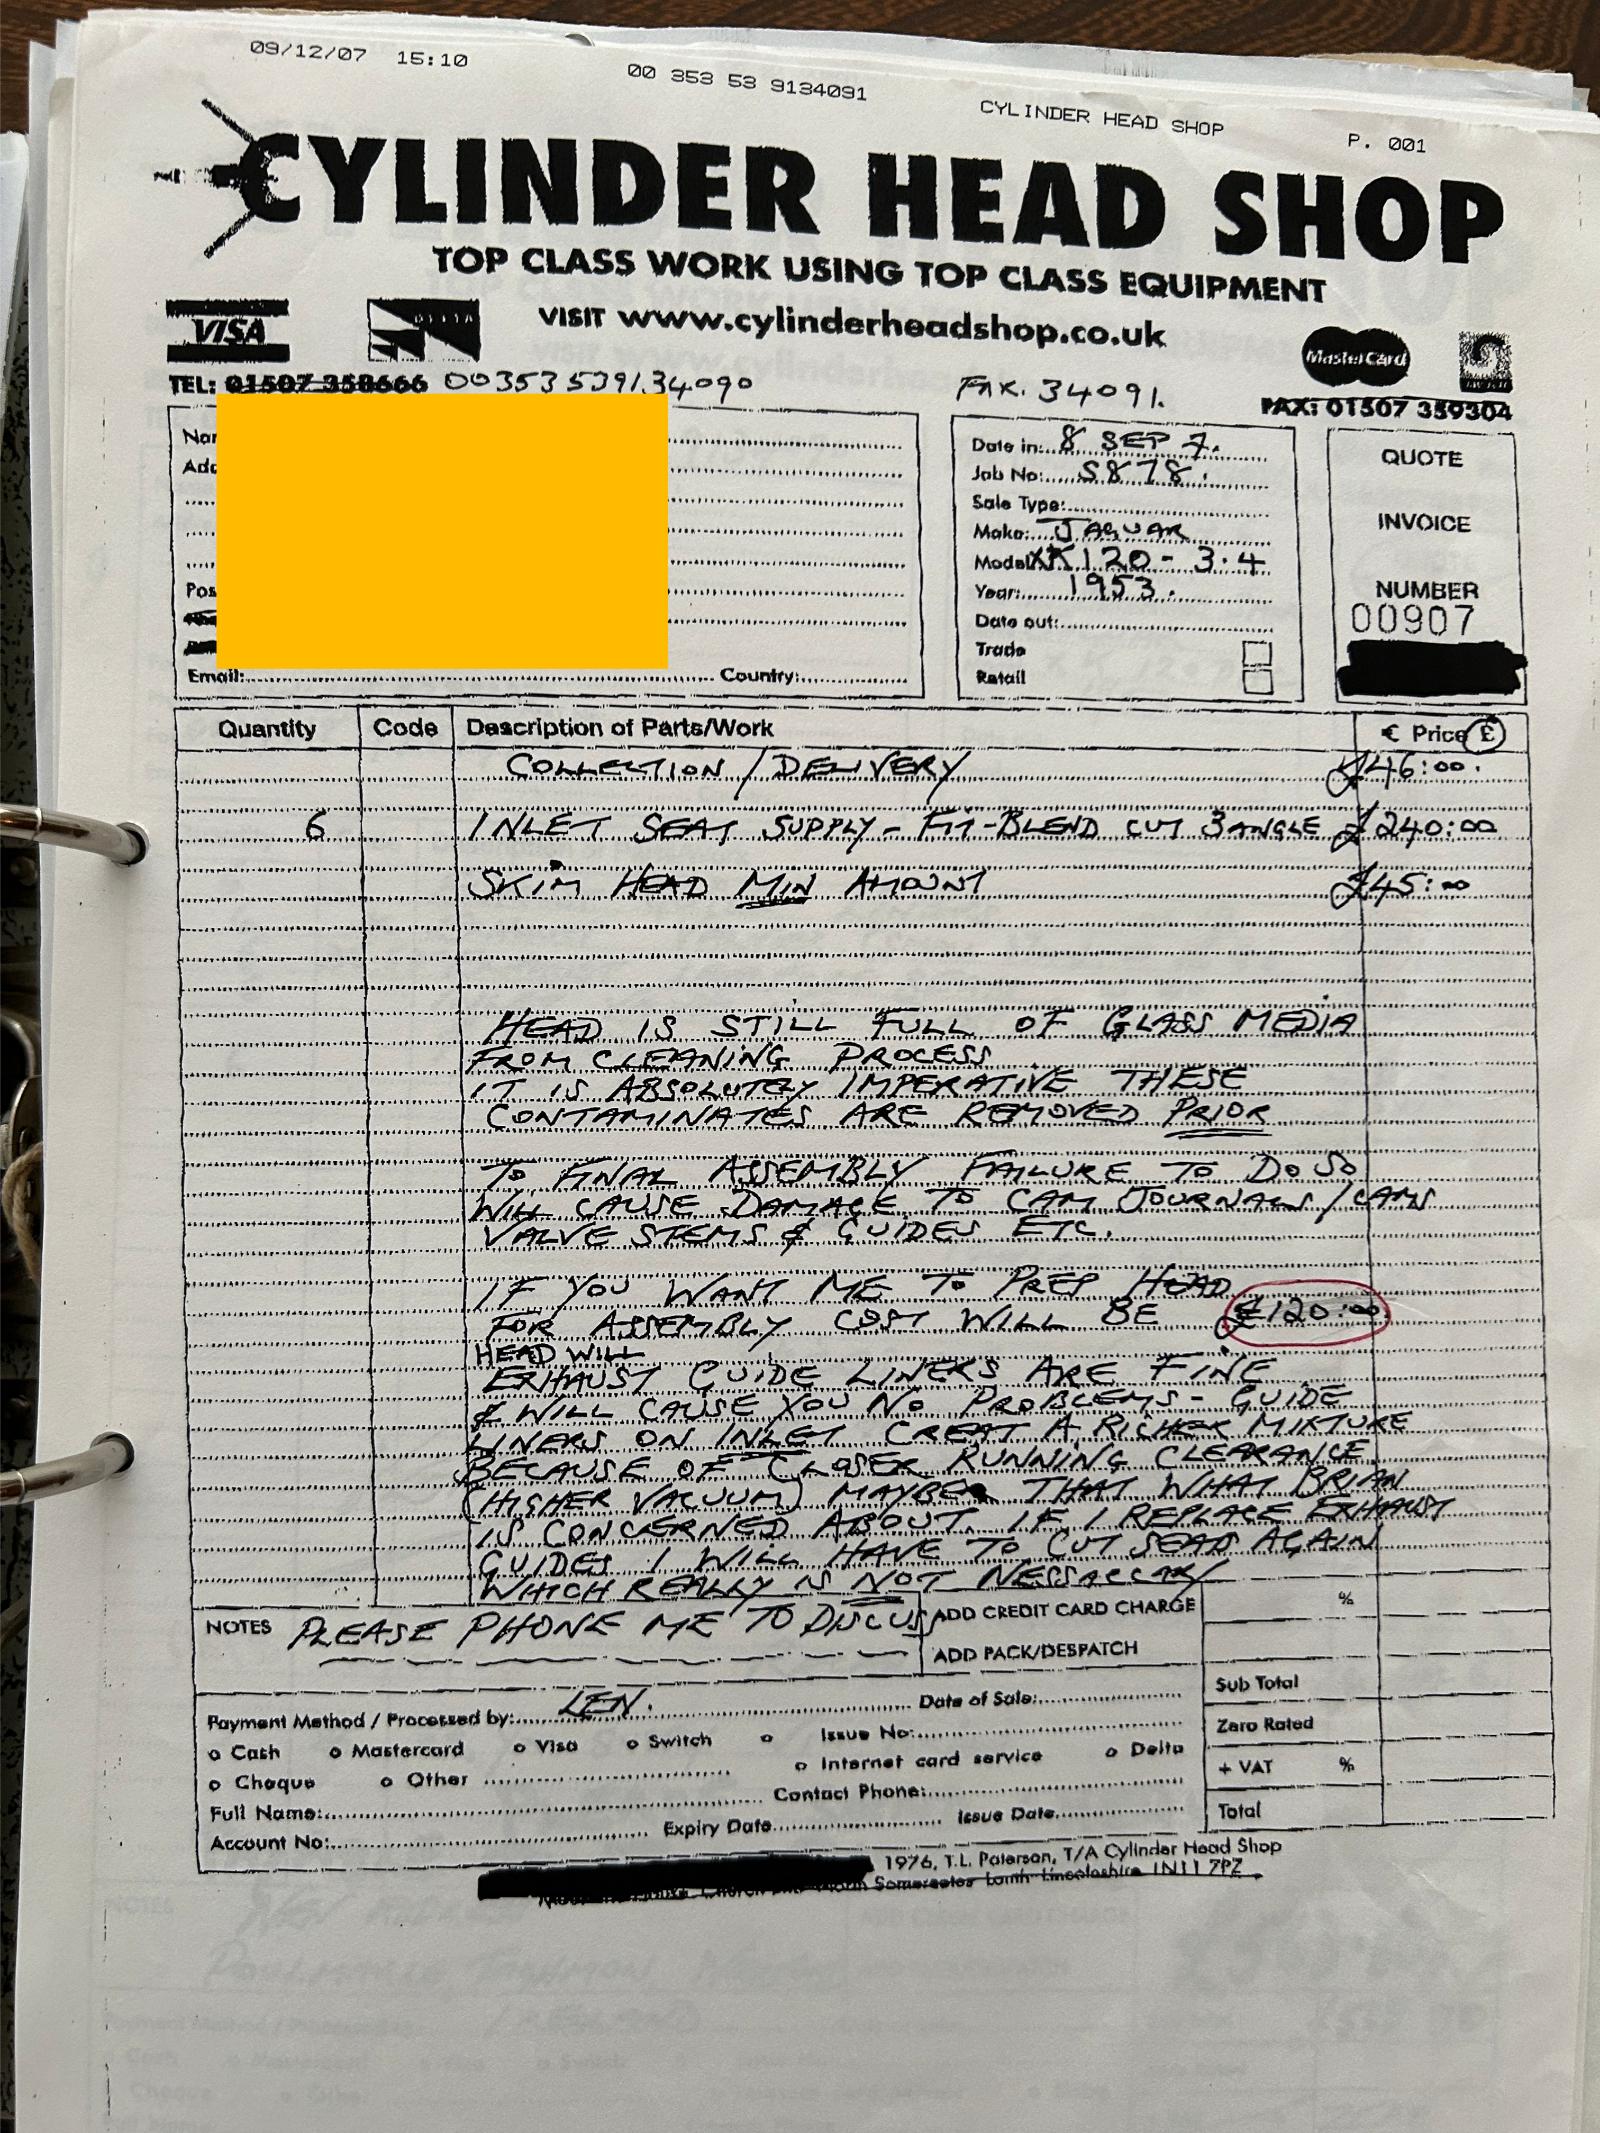 09/12/07 15:10 00 353 53 9134091 CYLINDER HEAD SHOP P. 001
CYLINDER HEAD SHOP
TOP CLASS WORK USING TOP CLASS EQUIPMENT
VISIT www.cylinderheadshop.co.uk
VISA DELTA MasterCard
TEL: 01507 358666 00353539134090 FAX. 34091.
FAX: 01507 359304
Email: Country:
Date in: 8 SEP 7.
Job No: S878.
Sale Type:
Make: JAGUAR
Model: XK120 - 3.4
Year: 1953.
Date out:
Trade
Retail
QUOTE
INVOICE
NUMBER
00907
Quantity Code Description of Parts/Work € Price £
COLLECTION/DELIVERY £46:00.
6 INLET SEAT SUPPLY - FIT-BLEND CUT 3 ANGLE £240:00
SKIM HEAD MIN AMOUNT £45:00
HEAD IS STILL FULL OF GLASS MEDIA
FROM CLEANING PROCESS
IT IS ABSOLUTELY IMPERATIVE THESE
CONTAMINATES ARE REMOVED PRIOR
TO FINAL ASSEMBLY FAILURE TO DO SO
WILL CAUSE DAMAGE TO CAM JOURNALS/CAMS
VALVE STEMS & GUIDES ETC.
IF YOU WANT ME TO PREP HEAD
FOR ASSEMBLY COST WILL BE £120:00
HEAD WILL
EXHAUST GUIDE LINERS ARE FINE
& WILL CAUSE YOU NO PROBLEMS - GUIDE
LINERS ON INLET CREAT A RICHER MIXTURE
BECAUSE OF CLOSER RUNNING CLEARANCE
(HIGHER VACUUM) MAYBE THAT WHAT BRIAN
IS CONCERNED ABOUT. IF I REPLACE EXHAUST
GUIDES I WILL HAVE TO CUT SEATS AGAIN
WHICH REALLY IS NOT NESSACCARY
NOTES PLEASE PHONE ME TO DISCUSS
ADD CREDIT CARD CHARGE %
ADD PACK/DESPATCH
Payment Method / Processed by: LEN. Date of Sale: Sub Total
Cash Mastercard Visa Switch Issue No: Zero Rated
Cheque Other Internet card service Delta + VAT %
Full Name: Contact Phone:
Account No: Expiry Date Issue Date Total
1976, T.L. Paterson, T/A Cylinder Head Shop
North Somercotes Louth Lincolnshire LN11 7PZ